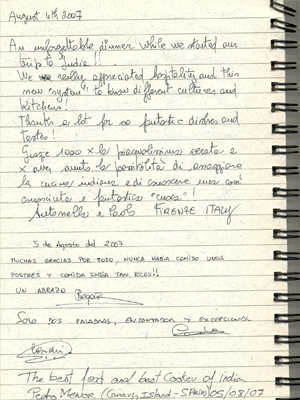 August 4th 2007
An unforgettable dinner while we started our
trip to India!!
We really appreciated hospitality and this
new "system" to know different cultures and
kitchens!
Thanks a lot for so fantastic dishes and
tastes!
Grazie 1000 x la piacevolissima serata e
x aver avuto la possibilità di assaggiare
la cucina indiana e di conoscere una così
conosciuta e fantastica "cuoca"!
Antonella e Paolo FIRENZE ITALY
5 de Agosto del 2007
MUCHAS GRACIAS POR TODO, NUNCA HABIA COMIDO UNOS
POSTRES Y COMIDA INDIA TAN RICOS!!
UN ABRAZO
Begoña
SOLO DOS PALABRAS, ENCANTADORA Y EXCEPCIONAL
The best food and best Cooker of India
Pedro (Canary Island - SPAIN) 05/08/07